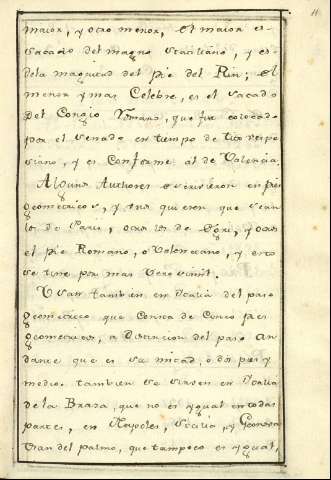 11
maior, y otro menor, el maior es
sacado del magno Staciliano, y es
dela magnitud del pie del Rin; el
menor y mas Celebre, es el sacado
Del Congio Romano, que fue colocado
por el Senado en tiempo de Tito vespa
siano, y es Conforme al de Valencia.
Algunos Authores escrivieron en pies
geometricos, y unos quieren que sean
los de Paris, otros los de , y otros
el pie Romano, o Valenciano, y esto
se tiene por mas verosimil.
Usan tambien en Italia del paso
geometrico que Consta de Cinco pies
geometricos, a Distincion del paso an
dante que es su mitad, o dos pies y
medio. tambien se sirven en Italia
de la Braza, que no es ygual en todas
partes, en Napoles, Sicilia, y Genova
Usan del palmo, que tampoco es ygual,